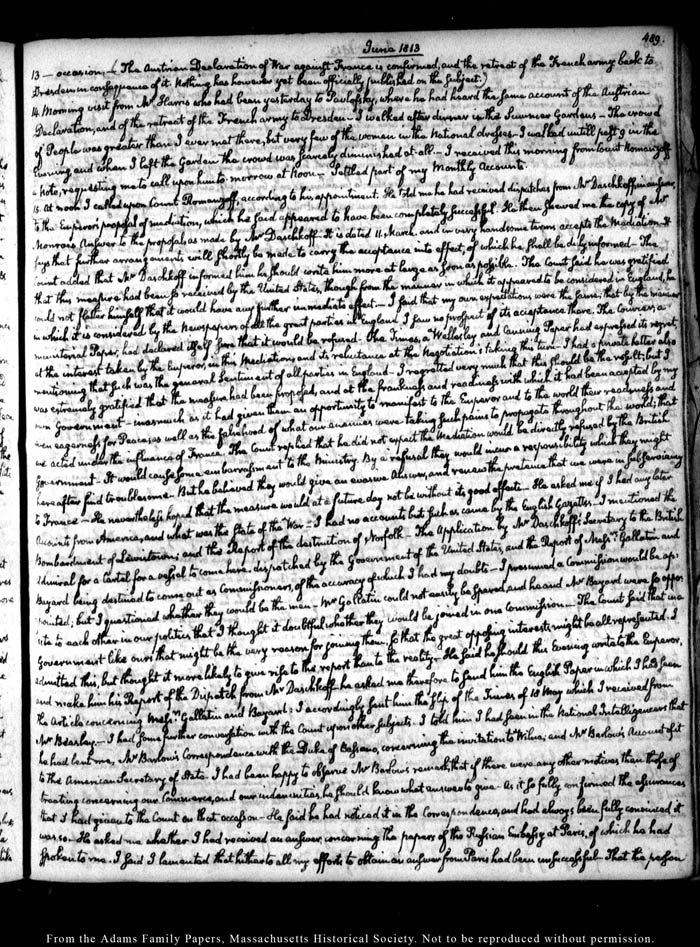 489.
June 1813
13 — occasion — (The Austrian Declaration of War against France is confirmed, and the retreat of the French army back to
Dresden in consequence of it. Nothing has however yet been officially published on the subject.)
14. Morning visit from Mr Harris who had been yesterday to Pavlofsky, where he had heard the same account of the Austrian
Declaration, and of the retreat of the French army to Dresden — I walked after dinner in the Summer Gardens — The crowd
of People was greater than I ever met there, but very few of the women in the National dresses — I walked untill past 9 in the
Evening, and when I left the Garden the crowd was scarcely diminished at all — I received this morning from Count Romanzoff
a note, requesting me to call upon him to-morrow at Noon — Settled part of my Monthly Accounts.
15. At noon I called upon Count Romanzoff, according to his appointment. He told me he had received dispatches from Mr Daschkoff in answer
to the Emperor's proposal of mediation, which he said appeared to have been completely successful. He then shewed me the copy of Mr
Monroe's Answer to the proposal, as made by Mr Daschkoff. It is dated 11. March, and in very handsome terms accepts the Mediation. It
says that further arrangements will shortly be made to carry the acceptance into effect, of which he shall be duly informed — The
Count added that Mr Daschkoff informed him he should write him more at large as soon as possible. The Count said he was gratified
that this measure had been so received by the United States, though from the manner in which it appeared to be considered in England, he
could not flatter himself that it would have any further immediate effect — I said that my own expectations were the same; that by the manner
in which it is considered by the Newspapers of all the great parties in England I saw no prospect of its acceptance there. The Courier, a
ministerial Paper, had declared itself sure that it would be refused. The Times, a Wellesley and Canning Paper had expressed its regret,
at the interest taken by the Emperor, in this Mediation, and its reluctance at the Negotiation's taking this turn — I had a private letter also
mentioning that such was the general sentiment of all parties in England — I regretted very much that this should be the result; but I
was extremely gratified that the measure had been proposed, and at the frankness and readiness with which it had been accepted by my
own Government — inasmuch as it had given them an opportunity to manifest to the Emperor and to the world their readiness and
even eagerness for Peace; as well as the falsehood of what our enemies were taking such pains to propagate throughout the world; that
we acted under the influence of France. The Count replied that he did not expect the Mediation would be directly refused by the British
Government. It would cause some embarrassment to the Ministry. By a refusal they would incur a responsibility which they might
hereafter find troublesome. But he believed they would give an evasive Answer, and renew the pretence that we were in subserviency
to France — He nevertheless hoped that the measure would at a future day not be without its good effects — He asked me if I had any later
Accounts from America, and what was the State of the War — I had no accounts but such as came by the English Gazettes — I mentioned the
Bombardment of Lewistown; and the Report of the destruction of Norfolk — The Application by Mr Daschkoff's Secretary to the British
Admiral for a Cartel for a vessel to come here, dispatched by the Government of the United States, and the Report of Messrs Gallatin and
Bayard being destined to come out as Commissioners, of the accuracy of which I had my doubts — I presumed a Commission would be ap-
pointed; but I questioned whether they would be the men — Mr Gallatin could not easily be spared, and he and Mr Bayard were so oppo-
site to each other in our politics that I thought it doubtful whether they would be joined in one Commission — The Count said that in a
Government like ours that might be the very reason for joining them, so that the great opposing interests might be all represented. I
admitted this, but thought it more likely to give rise to the report than to the reality — He said he should this Evening write to the Emperor,
and make him his Report of the Dispatch from Mr Daschkoff he asked me therefore to send him the English Paper in which I had seen
the Article concerning Messrs Gallatin and Bayard: I accordingly sent him the slip of the Times of 18 May which I received from
Mr Beasley — I had some further conversation with the Count upon other subjects. I told him I had seen in the National Intelligencers that
he had lent me, Mr Barlow's Correspondence with the Duke of Bassano, concerning the invitation to Wilna, and Mr Barlow's Account of it
to the American Secretary of State. I had been happy to observe Mr Barlow's remark, that if there were any other motives than those of
treating concerning our Commerce, and our indemnities, he should know what answer to give — As it so fully confirmed the assurances
that I had given to the Count on that occasion — He said he had noticed it in the Correspondence, and had always been fully convinced it
was so — He asked me whether I had received an answer, concerning the papers of the Russian Embassy at Paris, of which he had
spoken to me. I said I lamented that hitherto all my efforts to obtain an answer from Paris had been unsuccessful — That the person
From the Adams Family Papers, Massachusetts Historical Society. Not to be reproduced without permission.